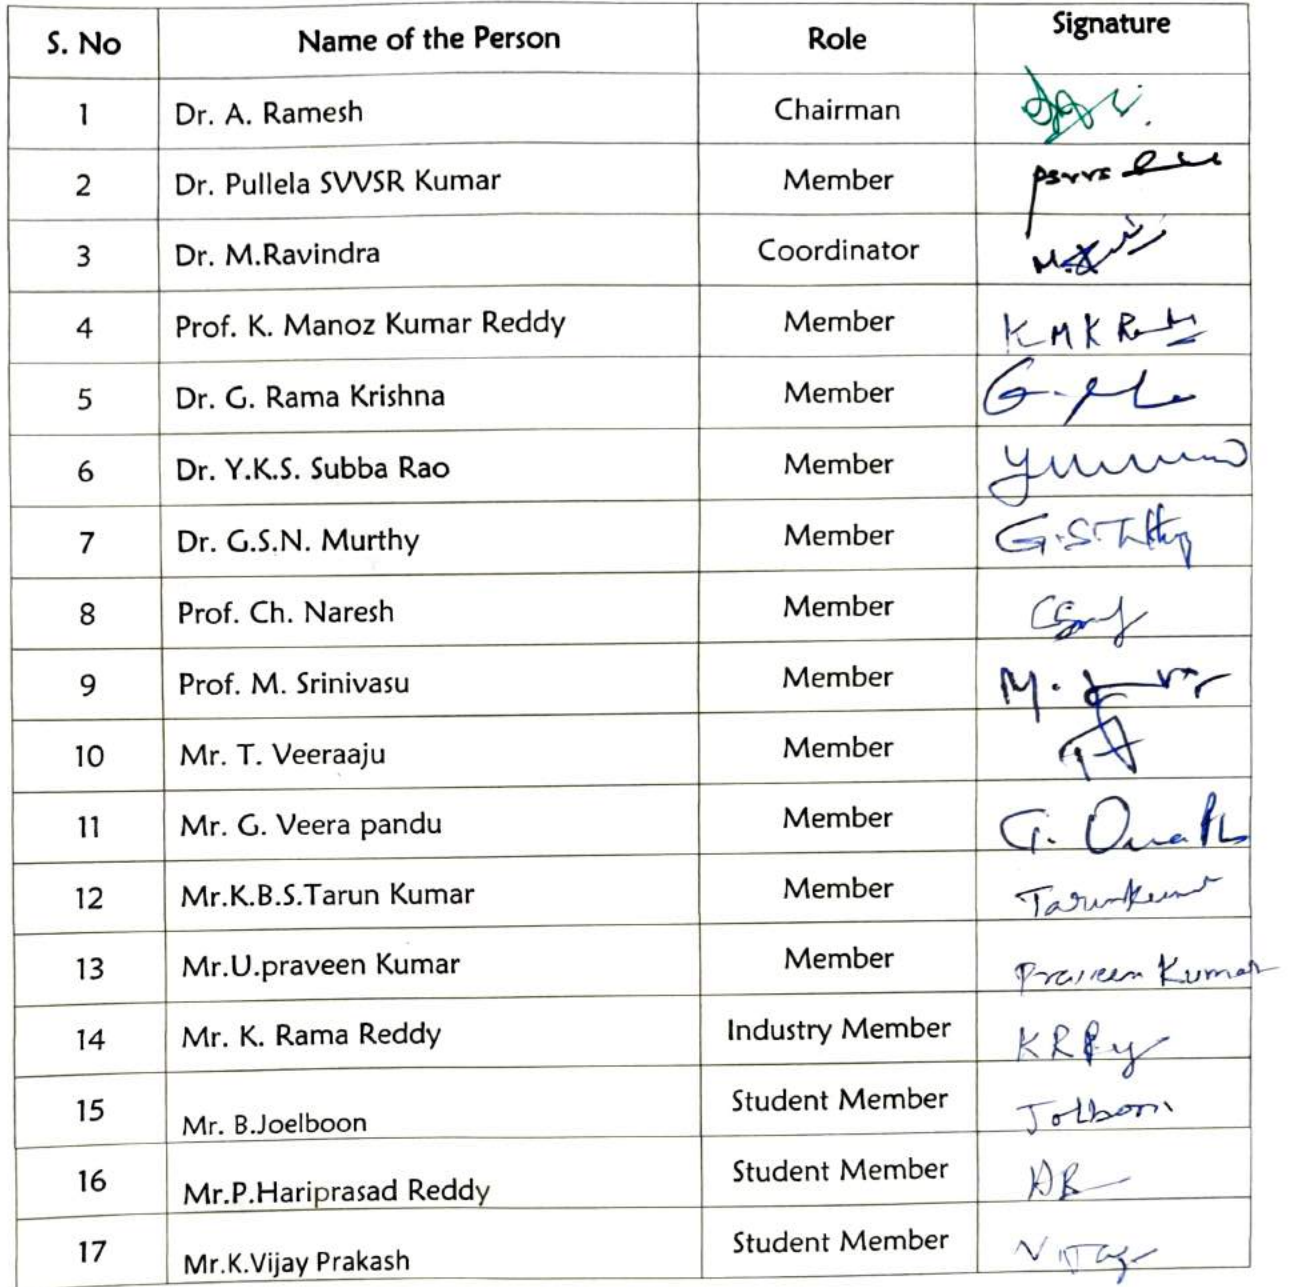 S. No Name of the Person Role Signature
1 Dr. A. Ramesh Chairman
2 Dr. Pullela SVVSR Kumar Member
3 Dr. M.Ravindra Coordinator
4 Prof. K. Manoz Kumar Reddy Member K M K
5 Dr. G. Rama Krishna Member
6 Dr. Y.K.S. Subba Rao Member
7 Dr. G.S.N. Murthy Member
8 Prof. Ch. Naresh Member
9 Prof. M. Srinivasu Member
10 Mr. T. Veeraaju Member
11 Mr. G. Veera pandu Member
12 Mr.K.B.S.Tarun Kumar Member Tarunkumar
13 Mr.U.praveen Kumar Member Praveen Kumar
14 Mr. K. Rama Reddy Industry Member
15 Mr. B.Joelboon Student Member
16 Mr.P.Hariprasad Reddy Student Member
17 Mr.K.Vijay Prakash Student Member